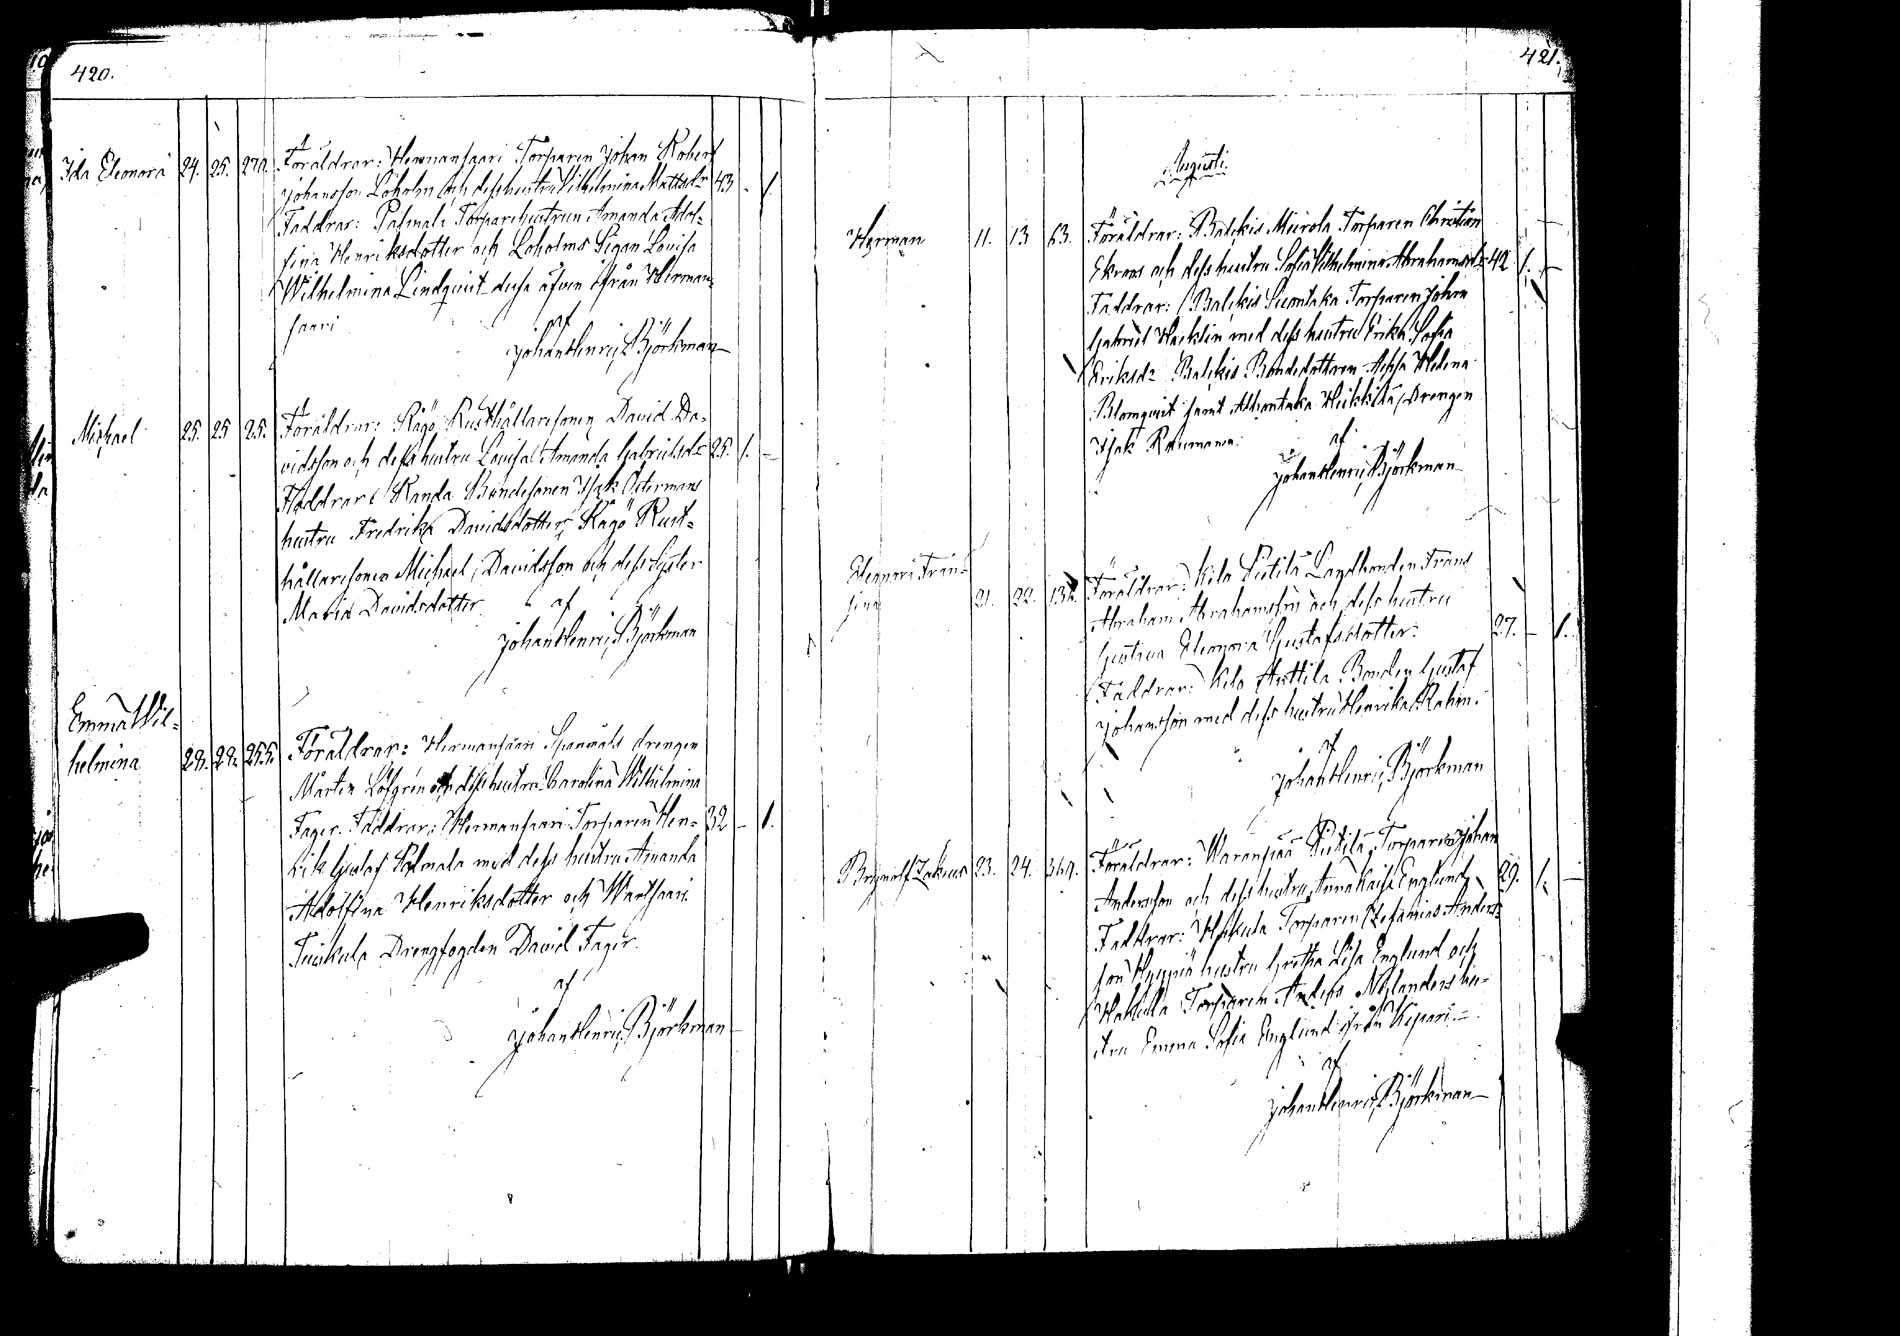 420.
Ida Eleonora 24. 25. 270. Föräldrar: Hermansaari Torparen Johan Robert
Johansson Löholm och dess hustru Wilhelmina Mattsdr 43 - 1.
Faddrar: Palmala Torparehustrun Amanda Adol=
fina Henriksdotter och Löholms Pigan Lovisa
Wilhelmina Lindqvist dessa äfven ifrån Herman=
saari
af
Johan Henric Björkman
Michael 25. 25 25. Föräldrar: Kågö Rusthållaresonen David Da=
vidsson och dess hustru Lovisa Amanda Gabrielsdr 25. 1. -
Faddrar: Randa Bondesonen Isak Östermans
hustru Fredrika Davidsdotter, Kågö Rust=
hållaresonen Michael Davidsson och dess Syster
Maria Davidsdotter
af
Johan Henric Björkman
Emma Wil=
helmina 29. 29. 255. Föräldrar: Hermansaari Spannäls drengen
Mårten Löfgren och dess hustru Carolina Wilhelmina
Fager. Faddrar: Hermansaari Torparen Hen= 32 - 1.
rik Gustaf Palmala med dess hustru Amanda
Adolfina Henriksdotter och Wartsaari
Tuiskula Drengfogden David Fager.
af
Johan Henric Björkman
421.
Augusti.
Herman 11. 13 63. Föräldrar: Balkis Mierola Torparen Christian
Ekroos och dess hustru Sofia Wilhelmina Abrahamsdr 42 1. -
Faddrar: Balkis Suontaka Torparen Johan
Gabriel Hacklin med dess hustru Erika Sofia
Eriksdr Balkis Bondedottren Helena
Blomqvist samt Heikkilä Drengen
Isak Raumanen.
af
Johan Henric Björkman
Eleanora Fran=
sina 21. 22. Föräldrar: Kila Pietilä Landbonden Frans
Abraham Abrahamsson och dess hustru
Gustava Eleonora Gustafsdotter. 27. - 1.
Faddrar: Kila Anttila Bonden Gustaf
Johansson med dess hustru Henrika Rahm.
af
Johan Henric Björkman
Brynolf Zakeus 23. 24. 369. Föräldrar: Waranpää Pietilä Torparen Johan
Andersson och dess hustru Anna Kaisa Englund, 29. 1. -
Faddrar: Torparen Zefanias Anders=
son Hyypiä hustru Gretha Lisa Englund och
Hakula Torparen Anders Nylanders hu=
stru Emma Sofia Englund ifrån
af
Johan Henric Björkman